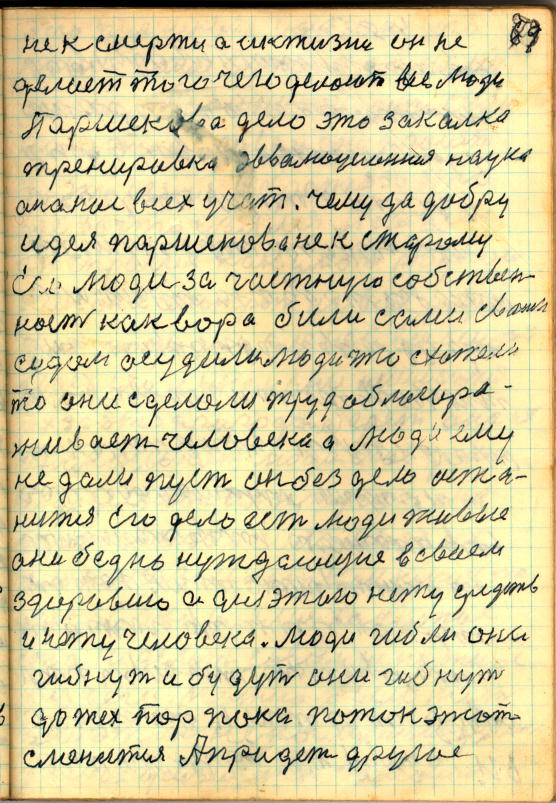 89
не к смерти а и к жизни он не
делает того чего делают все люди
Паршекова дело это закалка
тренировка эвволюционная наука
она нас всех учит. чему да добру
идея паршекова не к старому
Его люди за частную собствен-
ность как вора били сами своим
судом осудили люди что схотели
то они сделали труд облагора-
живает человека а люди ему
не дали пуст он без дело оста-
нится Его дело ест люди живые
они бедно нуждающие в своем
здоровию а для этого нету средств
и нету человека. люди гибли они
гибнут и будут они гибнут
до тех пор пока поток этот
сменится А придет другое